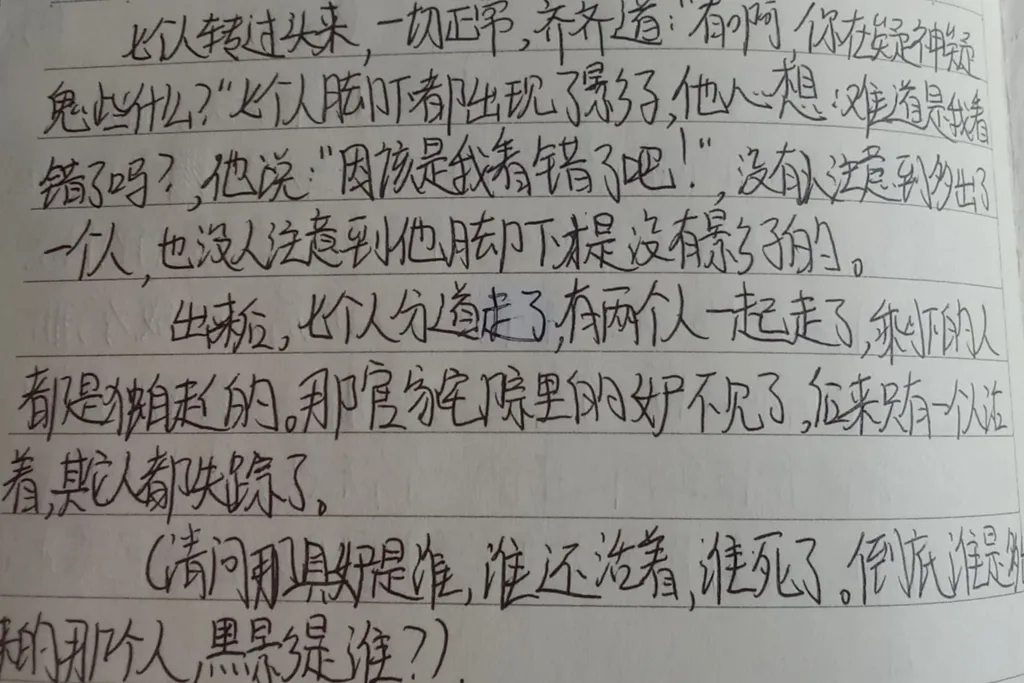 七个人转过头来,一切正常,齐齐道:"有啊,你在疑神疑
鬼些什么?"七个人脚下都出现了影子,他心想:难道是我看
错了吗?,他说:"因该是我看错了吧!",没有人注意到多出了
一个人,也没人注意到他脚下才是没有影子的。
出来后,七个人分道走了,有两个人一起走了,剩下的人
都是独自走的。那官家宅院里的女尸不见了,后来只有一个人活
着,其它人都失踪了。
(请问那具女尸是谁,谁还活着,谁死了。倒底谁是多
出来的那个人,黑影是谁?)